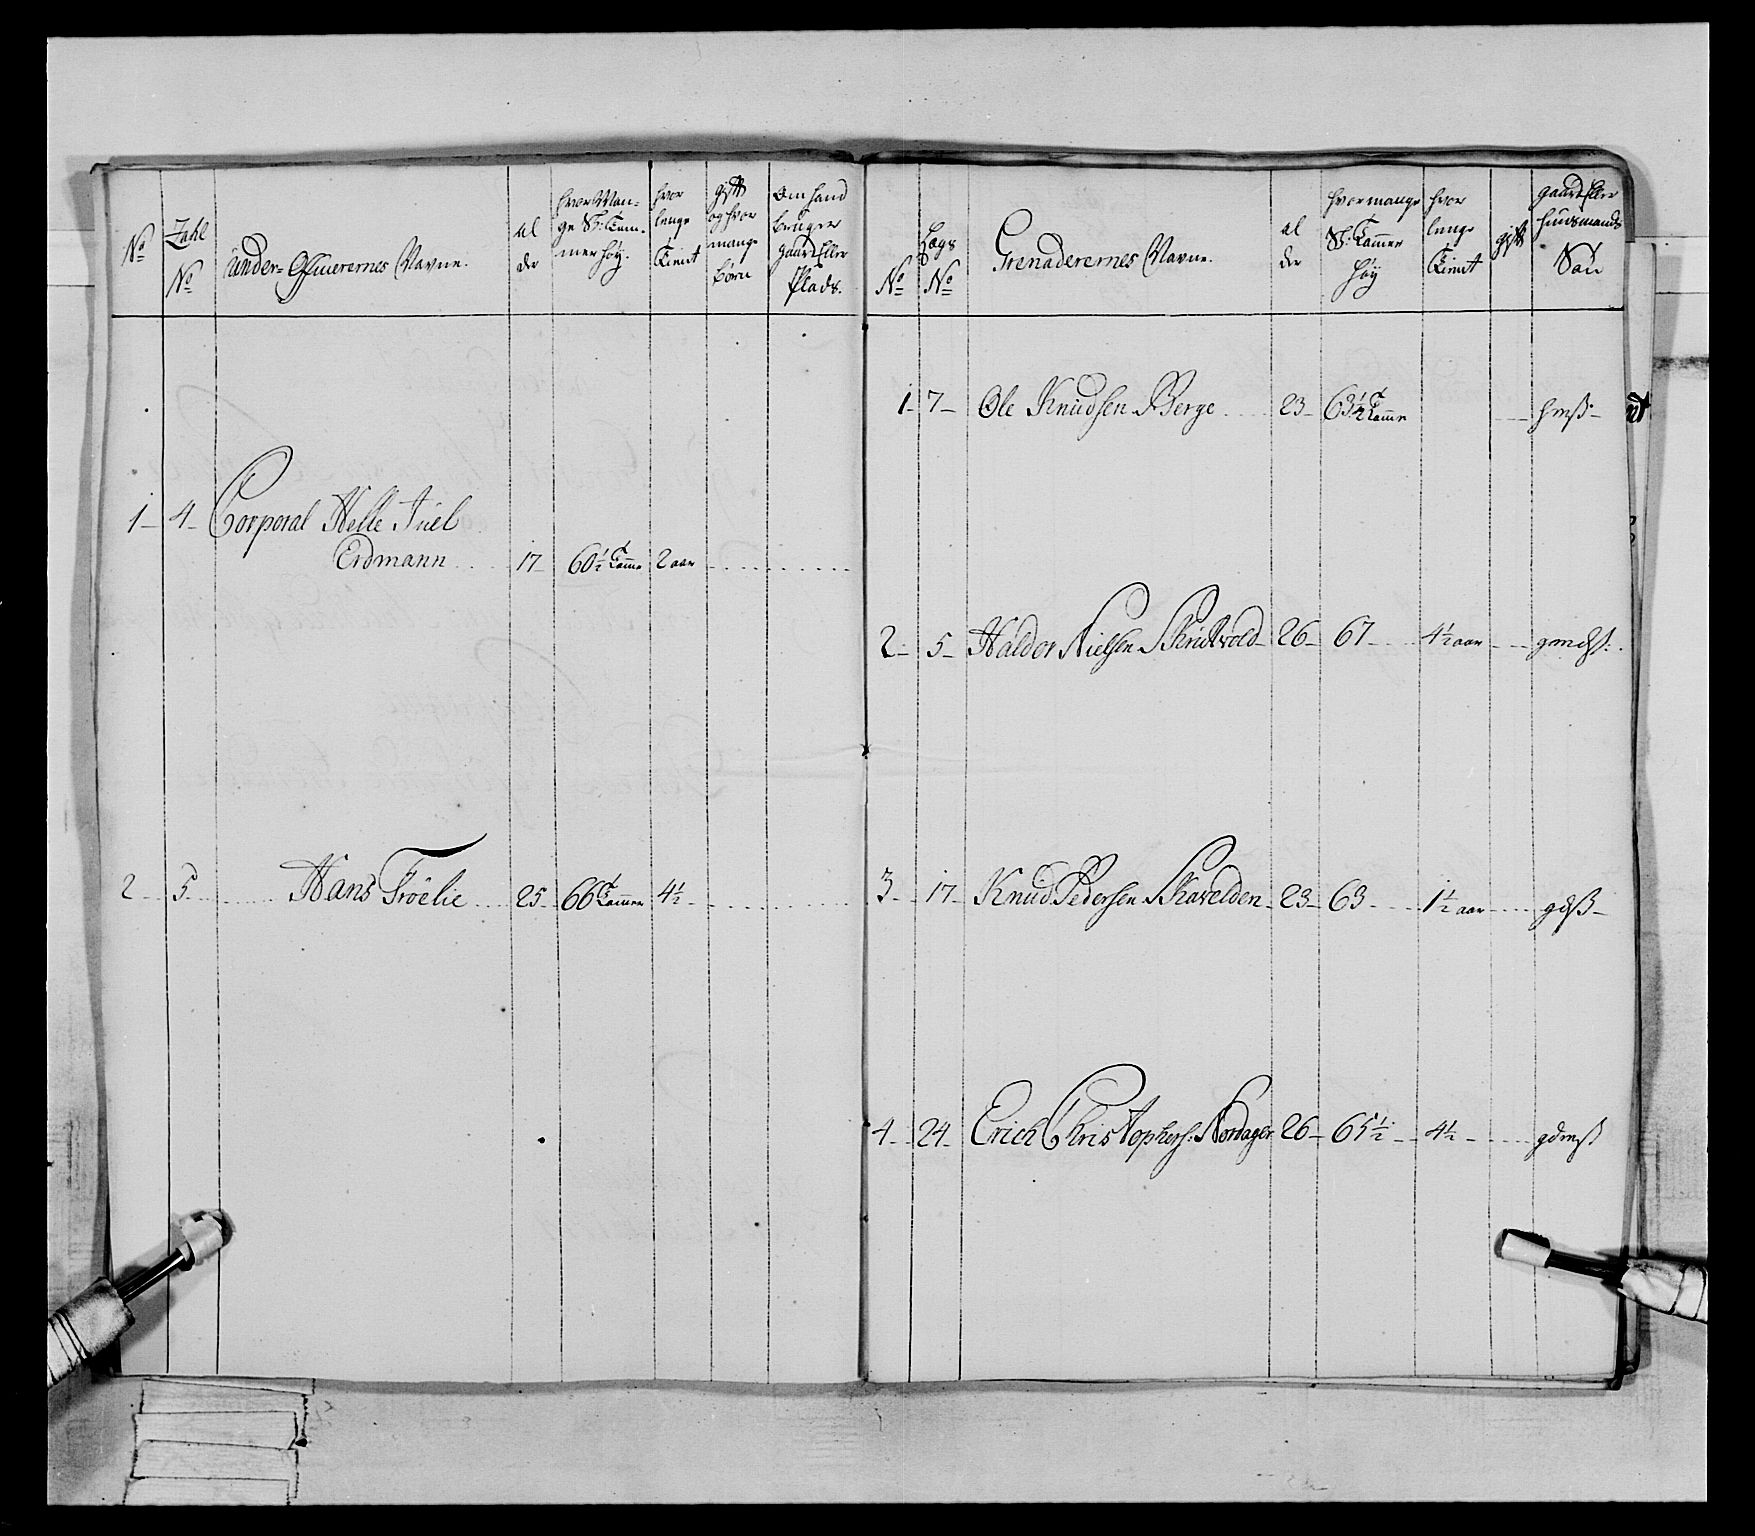 No
Zahl No
Under-Officerernes Navne.
al der
hvor Man- ge Sj: Tom- mer høy.
hvor lenge Tient
gift og hvor mange børn
Om hand bruger gaard Eller Plads.
1 4 Corporal Helle Juel
Erdmann 17 60½ Tomme 2 aar
2 5 Hans Fröelie 25 66 Tommer 4½
No
Legs No
Grenaderernes Navne.
al der
hvor mange Sj: Tommer høy
hvor lenge Tient
gift
gaard Eller huusmands Søn
1 7 Ole Knudsen Berge 23 63½ Tomme
2 5 Haldor Nielsen 26 67 4½ aar
3 17 Knud Pedersen 23 63 1½ aar
4 24 Erich Christophers: Nordager 26 65½ 4½